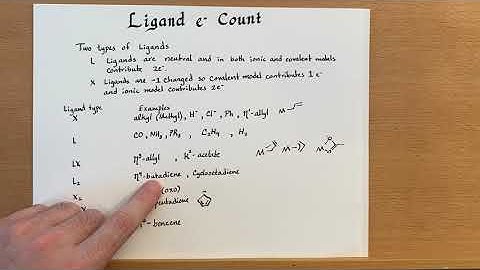 Ligand e⁻ Count
Two types of Ligands
L Ligands are neutral and in both ionic and covalent models
contribute 2e⁻.
X Ligands are -1 changed so covalent model contributes 1 e⁻
and ionic model contributes 2e⁻
Ligand type Examples
X alkyl (Methyl), H⁻, Cl⁻, Ph, η¹-allyl M
L CO, NH₃, PR₃, C₂H₄, H₂
LX η³-allyl, K²-acetate M M M
L₂ η⁴-butadiene, Cyclooctadiene
X₂ (oxo)
-benzene